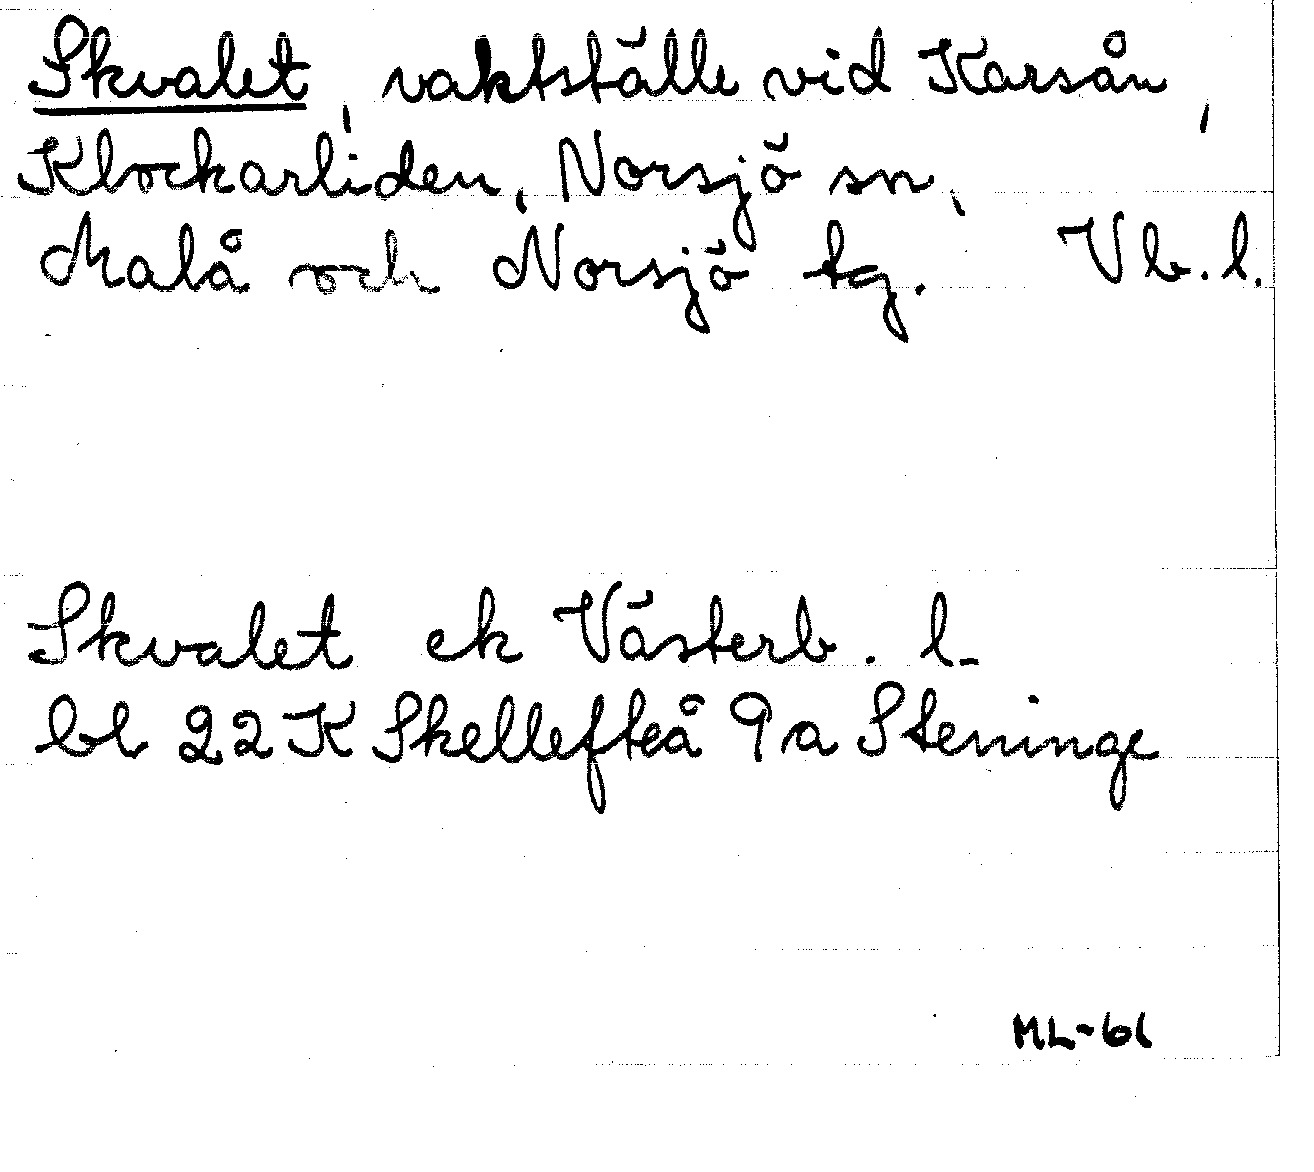 Skvalet, vaktställe vid Karsån,
Klockarliden, Norsjö sn,
Malå och Norsjö tg. Vb. l.
Skvalet ek Västerb. l-
bl 22K Skellefteå 9a Steninge
ML-61